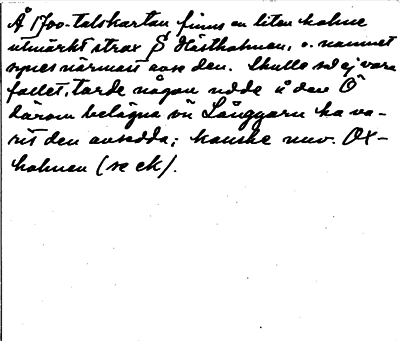 Å 1700-talskartan finns en liten holme
utmärkt strax S Hästholmen, o. namnet
synes närmast avse den. Skulle så ej vara
fallet, torde någon udde å den Ö
därom belägna ön Långgarn ha va-
rit den avsedda; kanske nuv. Ox-
holmen (se ek).